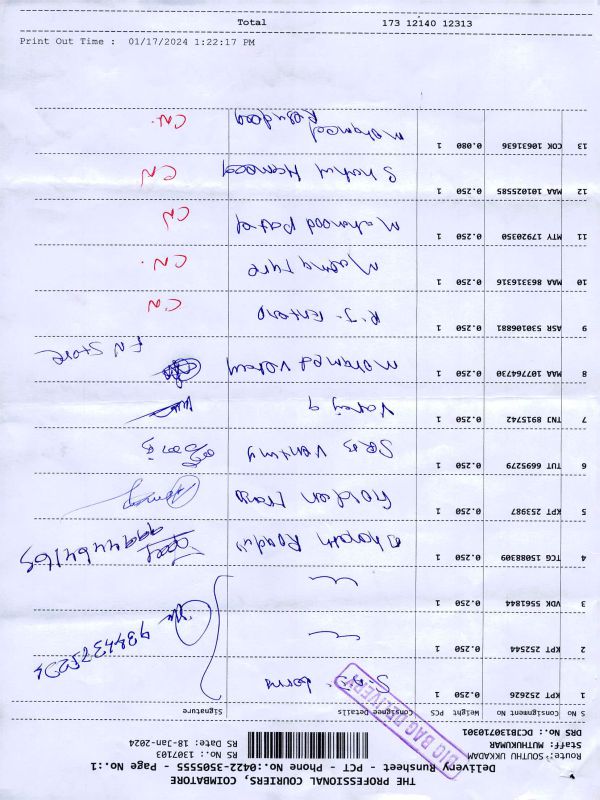 THE PROFESSIONAL COURIERS, COIMBATORE
Delivery Runsheet - PCT - Phone No.:0422-3505555 - Page No.:1
Route: SOUTHU UKKADAM
Staff: MUTHUKUMAR
DRS No.: DC3B130710301
RS No.: 1307103
RS Date: 18-Jan-2024
BIG BAG DELIVERY
S No Consignment No Weight PCS Consignee Details Signature
1 KPT 252626 0.250 1
2 KPT 252544 0.250 1 9384375224
3 VDK 5561844 0.250 1
4 TCG 15088309 0.250 1 9994464165
5 KPT 253987 0.250 1 Golden Trans
6 TUT 6695279 0.250 1
7 TNJ 8915742 0.250 1
8 MAA 107764730 0.250 1 Mohamed FN Store
9 ASR 530106881 0.250 1 R.J. CN
10 MAA 863316316 0.250 1 CN.
11 MTY 17920350 0.250 1 Mahmood Patel CN
12 MAA 101025585 0.250 1 Shahul Hameed CN
13 COK 10631636 0.080 1 Mohamed CN.
Total 173 12140 12313
Print Out Time : 01/17/2024 1:22:17 PM